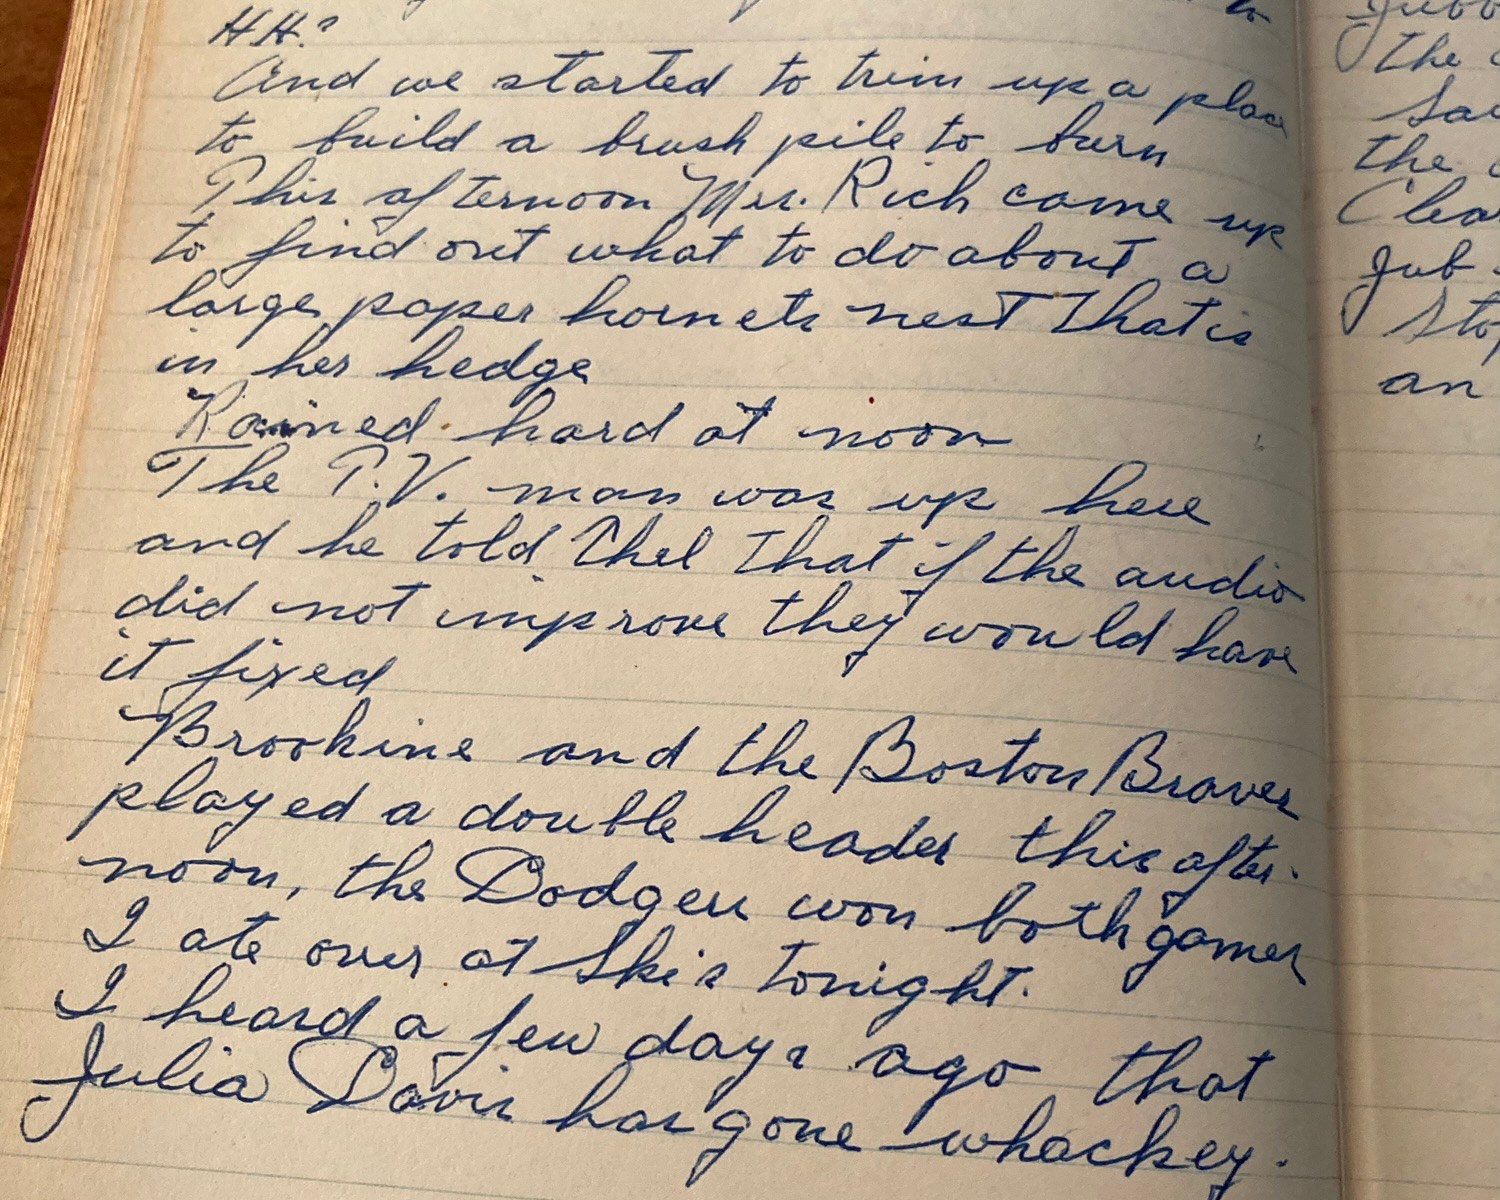 to
HH?
And we started to trim up a place
to build a brush pile to burn
This afternoon Mrs. Rich came up
to find out what to do about a
large paper hornets nest that is
in her hedge
Rained hard at noon
The T.V. man was up here
and he told Thel that if the audio
did not improve they would have
it fixed
Brookine and the Boston Braves
played a double header this after-
noon, the Dodgers won both games
I ate over at Skis tonight.
I heard a few days ago that
Julia Davis has gone whackey.
the
the
Jub
an